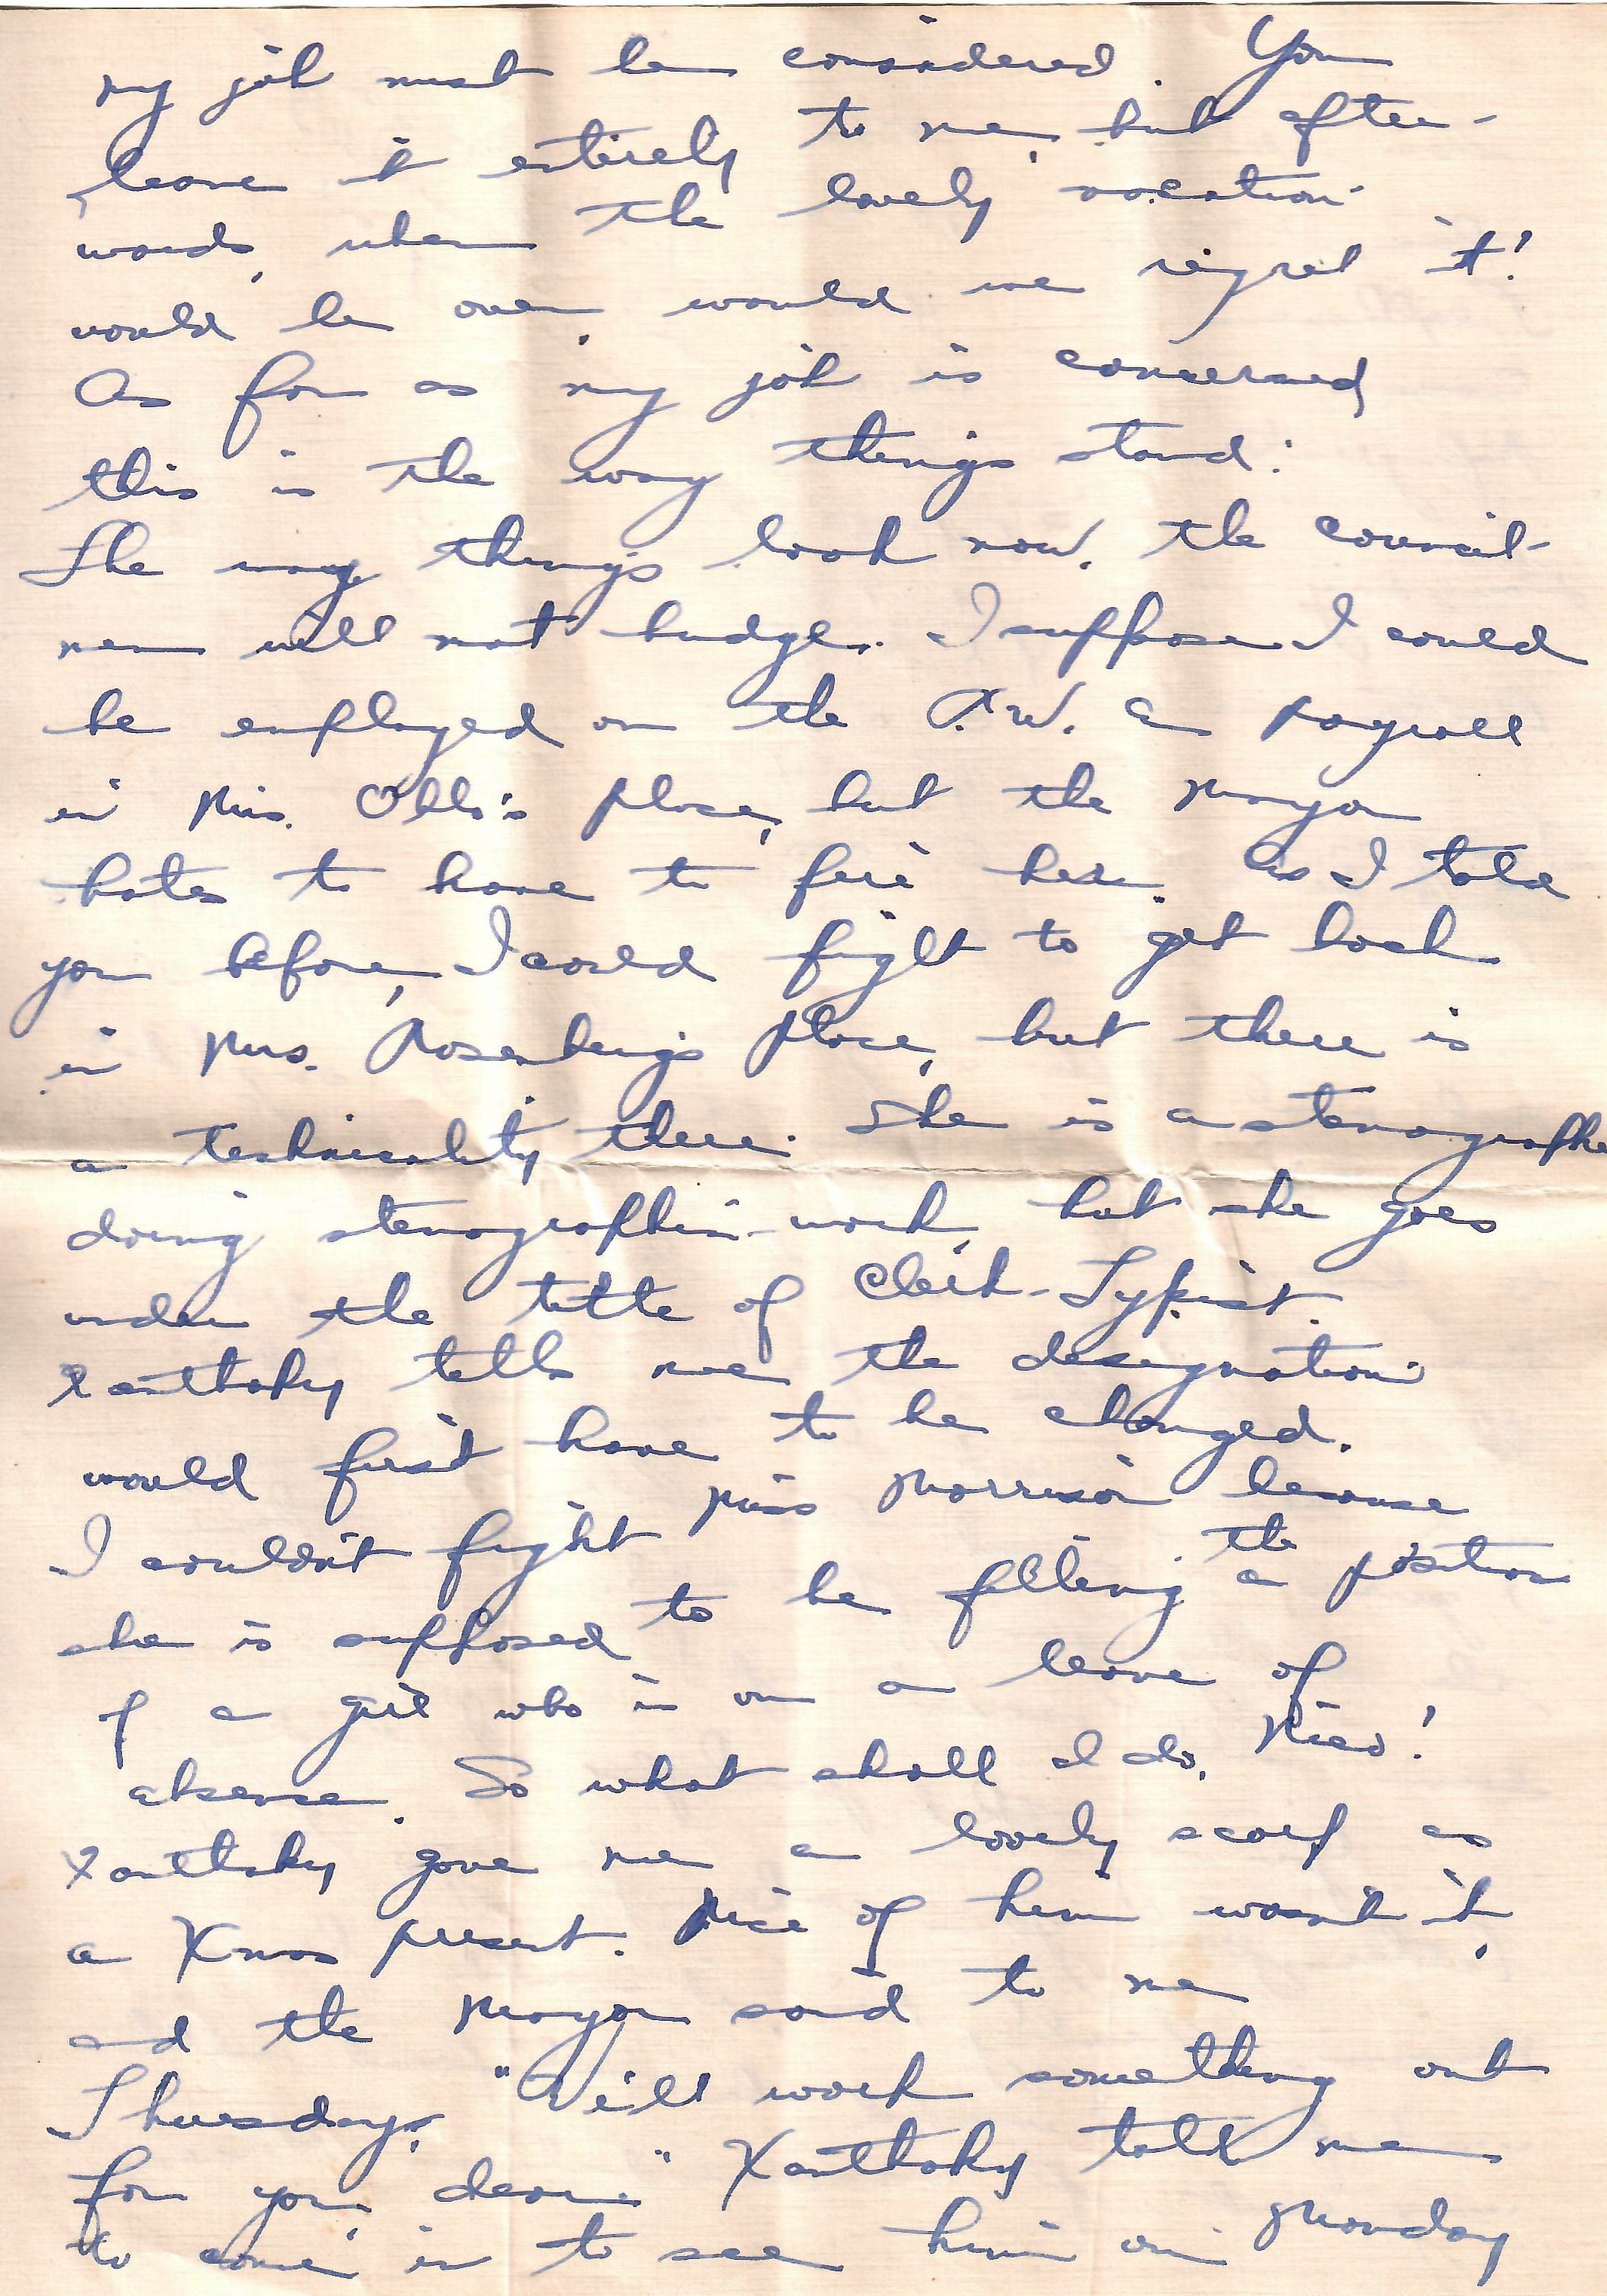 my job must be considered. You
leave it entirely to me, but after-
wards, when the lovely vacation
would be over, would we regret it!
As far as my job is concerned
this is the way things stand:
The way things look now, the council-
men will not budge. I suppose I could
be employed on the P.W.A. payroll
in Mrs. place, but the Mayor
hates to have to fire her. As I told
you before, I could fight to get back
in Mrs. Rosenberg's place, but there is
a technicality there. She is a stenographe
doing stenographic work, but she goes
under the title of Clerk-Typist.
Xanthaky tells me the designation
would first have to be changed.
I couldn't fight Miss Morrison because
she is supposed to be filling the position
of a girl who is on a leave of
absence. So what shall I do,
Xanthaky gave me a lovely scarf as
a Xmas present. Nice of him wasn't it,
and the Mayor said to me
Thursday, "We'll work something out
for you, dear." Xanthaky told me
to come in to see him on Monday